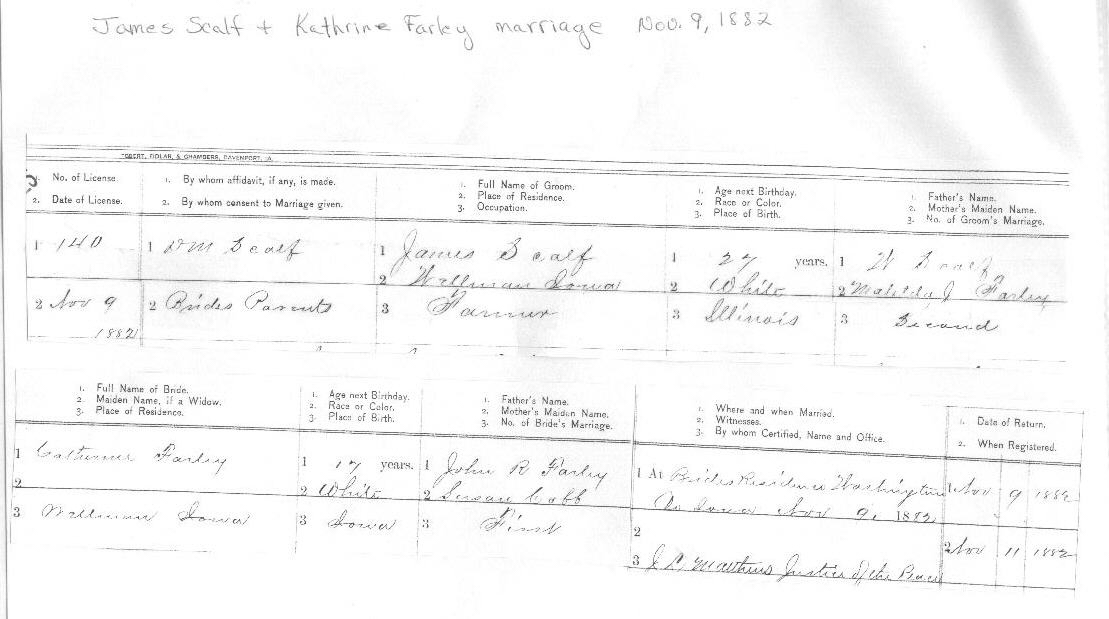 James Scalf + Kathrine Farley marriage Nov. 9, 1882
EGBERT, FIDLAR, & CHAMBERS, DAVENPORT, IA.
1. No. of License.
2. Date of License.
1. By whom affidavit, if any, is made.
2. By whom consent to Marriage given.
1. Full Name of Groom.
2. Place of Residence.
3. Occupation.
1. Age next Birthday.
2. Race or Color.
3. Place of Birth.
1. Father's Name.
2. Mother's Maiden Name.
3. No. of Groom's Marriage.
1 140
2 Nov 9
1882
1 Wm Scalf
2 Brides Parents
1 James Scalf
2 Wellman Iowa
3 Farmer
1 27 years.
2 White
3 Illinois
1 W Scalf
2 Matilda J Farley
3 Second
1. Full Name of Bride.
2. Maiden Name, if a Widow.
3. Place of Residence.
1. Age next Birthday.
2. Race or Color.
3. Place of Birth.
1. Father's Name.
2. Mother's Maiden Name.
3. No. of Bride's Marriage.
1. Where and when Married.
2. Witnesses.
3. By whom Certified, Name and Office.
1. Date of Return.
2. When Registered.
1 Catherine Farley
2
3 Wellman Iowa
1 17 years.
2 White
3 Iowa
1 John R Farley
2 Susan Cobb
3 First
1 At Brides Residence Washington
Co Iowa Nov 9, 1882
2
3 Matthews Justice of the Peace
1 Nov 9 1882
2 Nov 11 1882